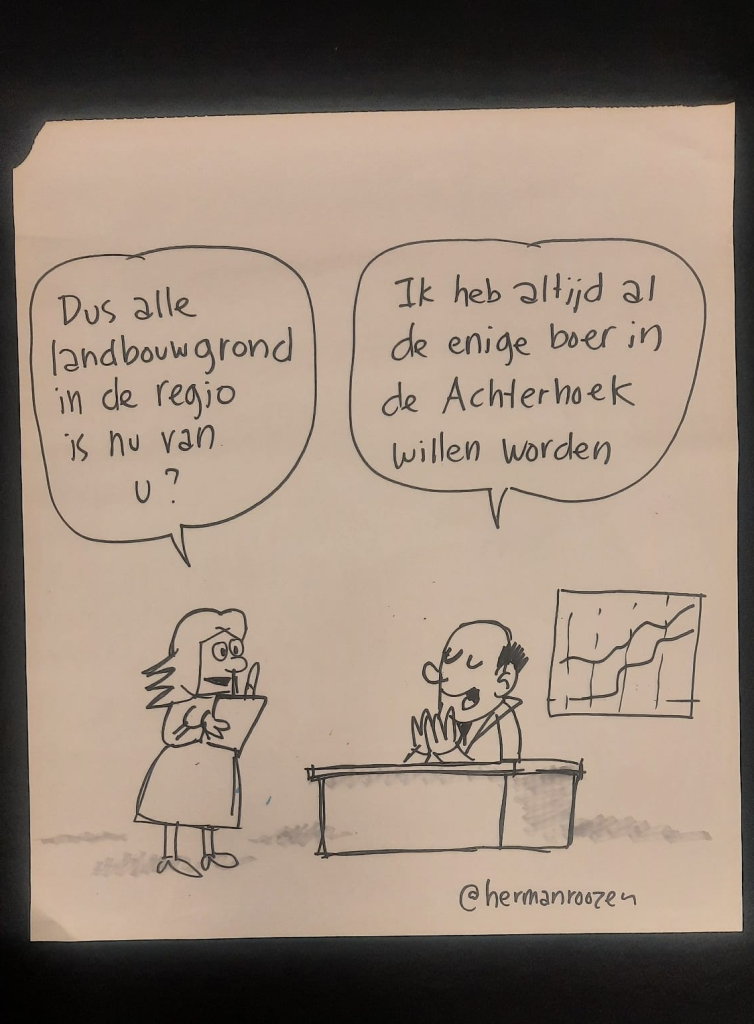 Dus alle
landbouwgrond
in de regio
is nu van
u?
Ik heb altijd al
de enige boer in
de Achterhoek
willen worden
@hermanroozen